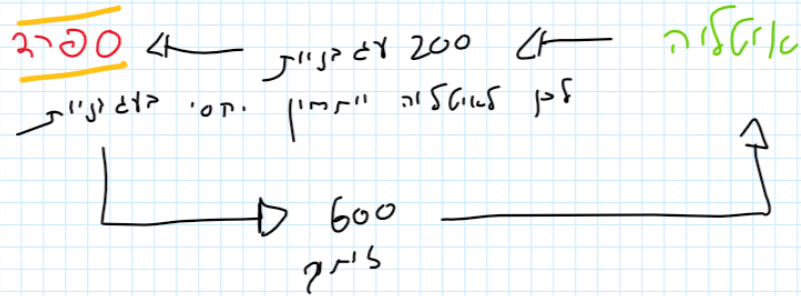 איטליה 200 עגבניות ספרד
לכן לאיטליה יתרון יחסי בעגבניות
600
זיתים